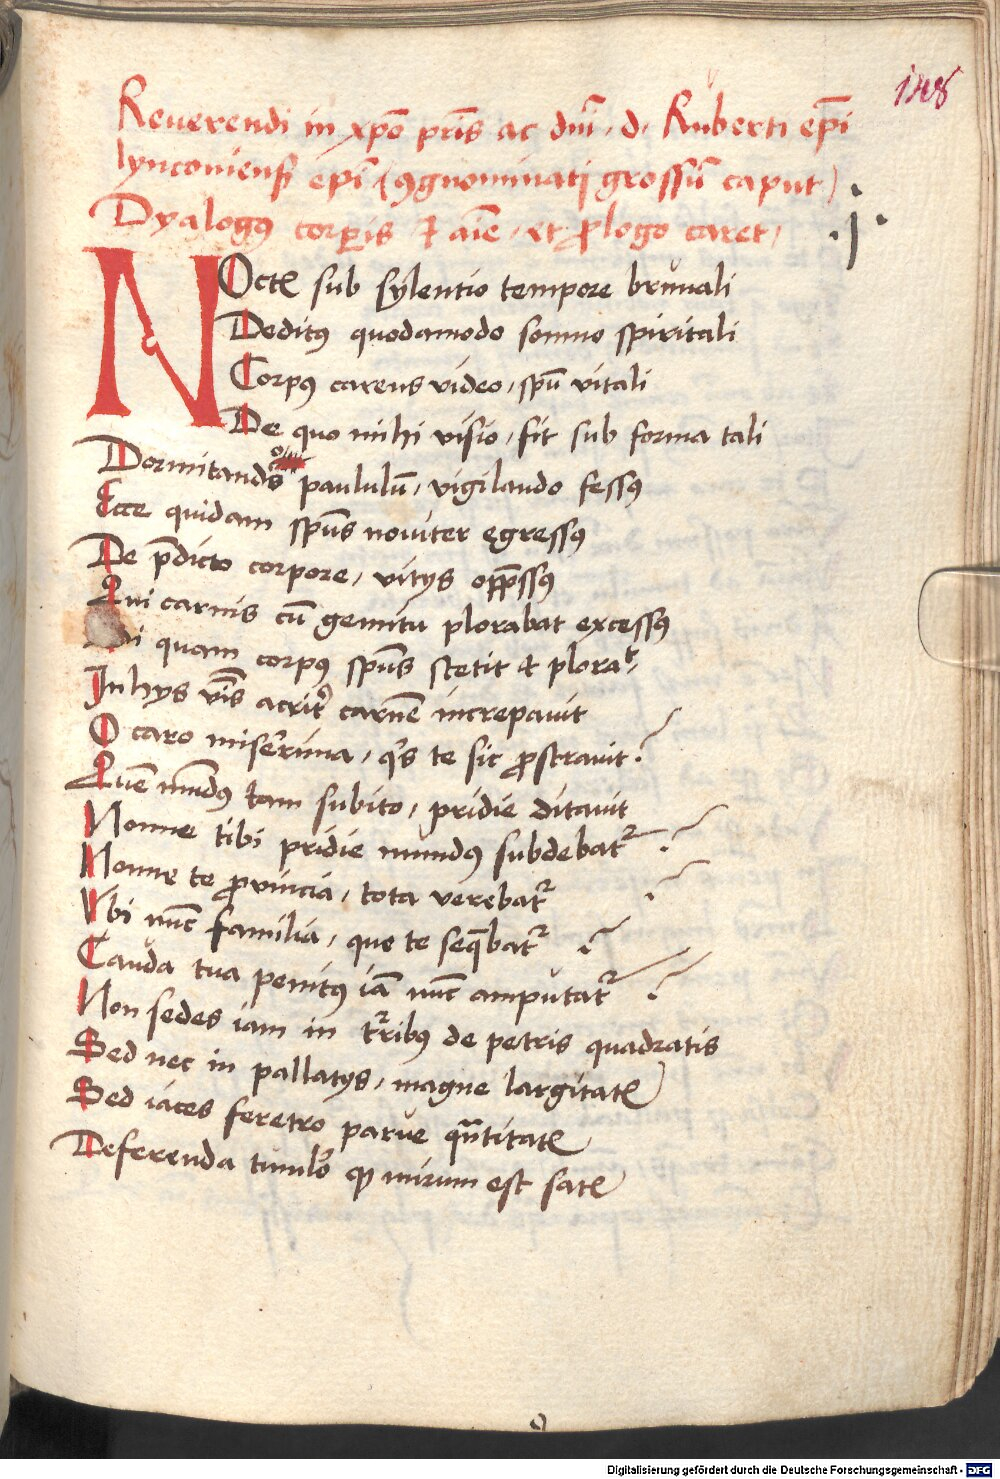 148
Reuerendi in xpo pris ac dni . d . Ruberti epi
lynconiensis epi (ꝯgnominati grossu caput)
Dyalogꝰ corꝑis ⁊ aie, et ꝓlogo caret,
.j.
NOctꝭ sub sylentio tempore bruuali
Deditꝰ quodamodo somno spiritali
Corpꝰ carens video, spu vitali
De quo mihi visio, fit sub forma tali
Dormitando paululu, vigilando fessꝰ
Ecce quidam spus nouiter ęgressꝰ
De pdicto corpore, vitys oppssꝰ
Qui carnis cu gemitu plorabat excessꝰ
quam corpꝰ spus stetit ⁊ plorat,
In hys vbis acrit carne increpauit
O caro miserima, qs te sic ꝓstrauit?
Que mudꝰ tam subito, pridie ditauit
Nonne tibi pridie mundꝰ subdebat᷑?
Nonne te ꝓvincia, tota verebat᷑?
Vbi nuc familia, que te seqbat᷑?
Cauda tua penitꝰ ia nuc amputat᷑?
Non sedes iam in t᷑ribꝰ de petris quadratis
Sed nec in pallatys, magne largitatꝭ
Sed iaces feretro parue qntitatꝭ
Deferenda tumulo ꝙ mirum est satꝭ
Digitalisierung gefördert durch die Deutsche Forschungsgemeinschaft - DFG